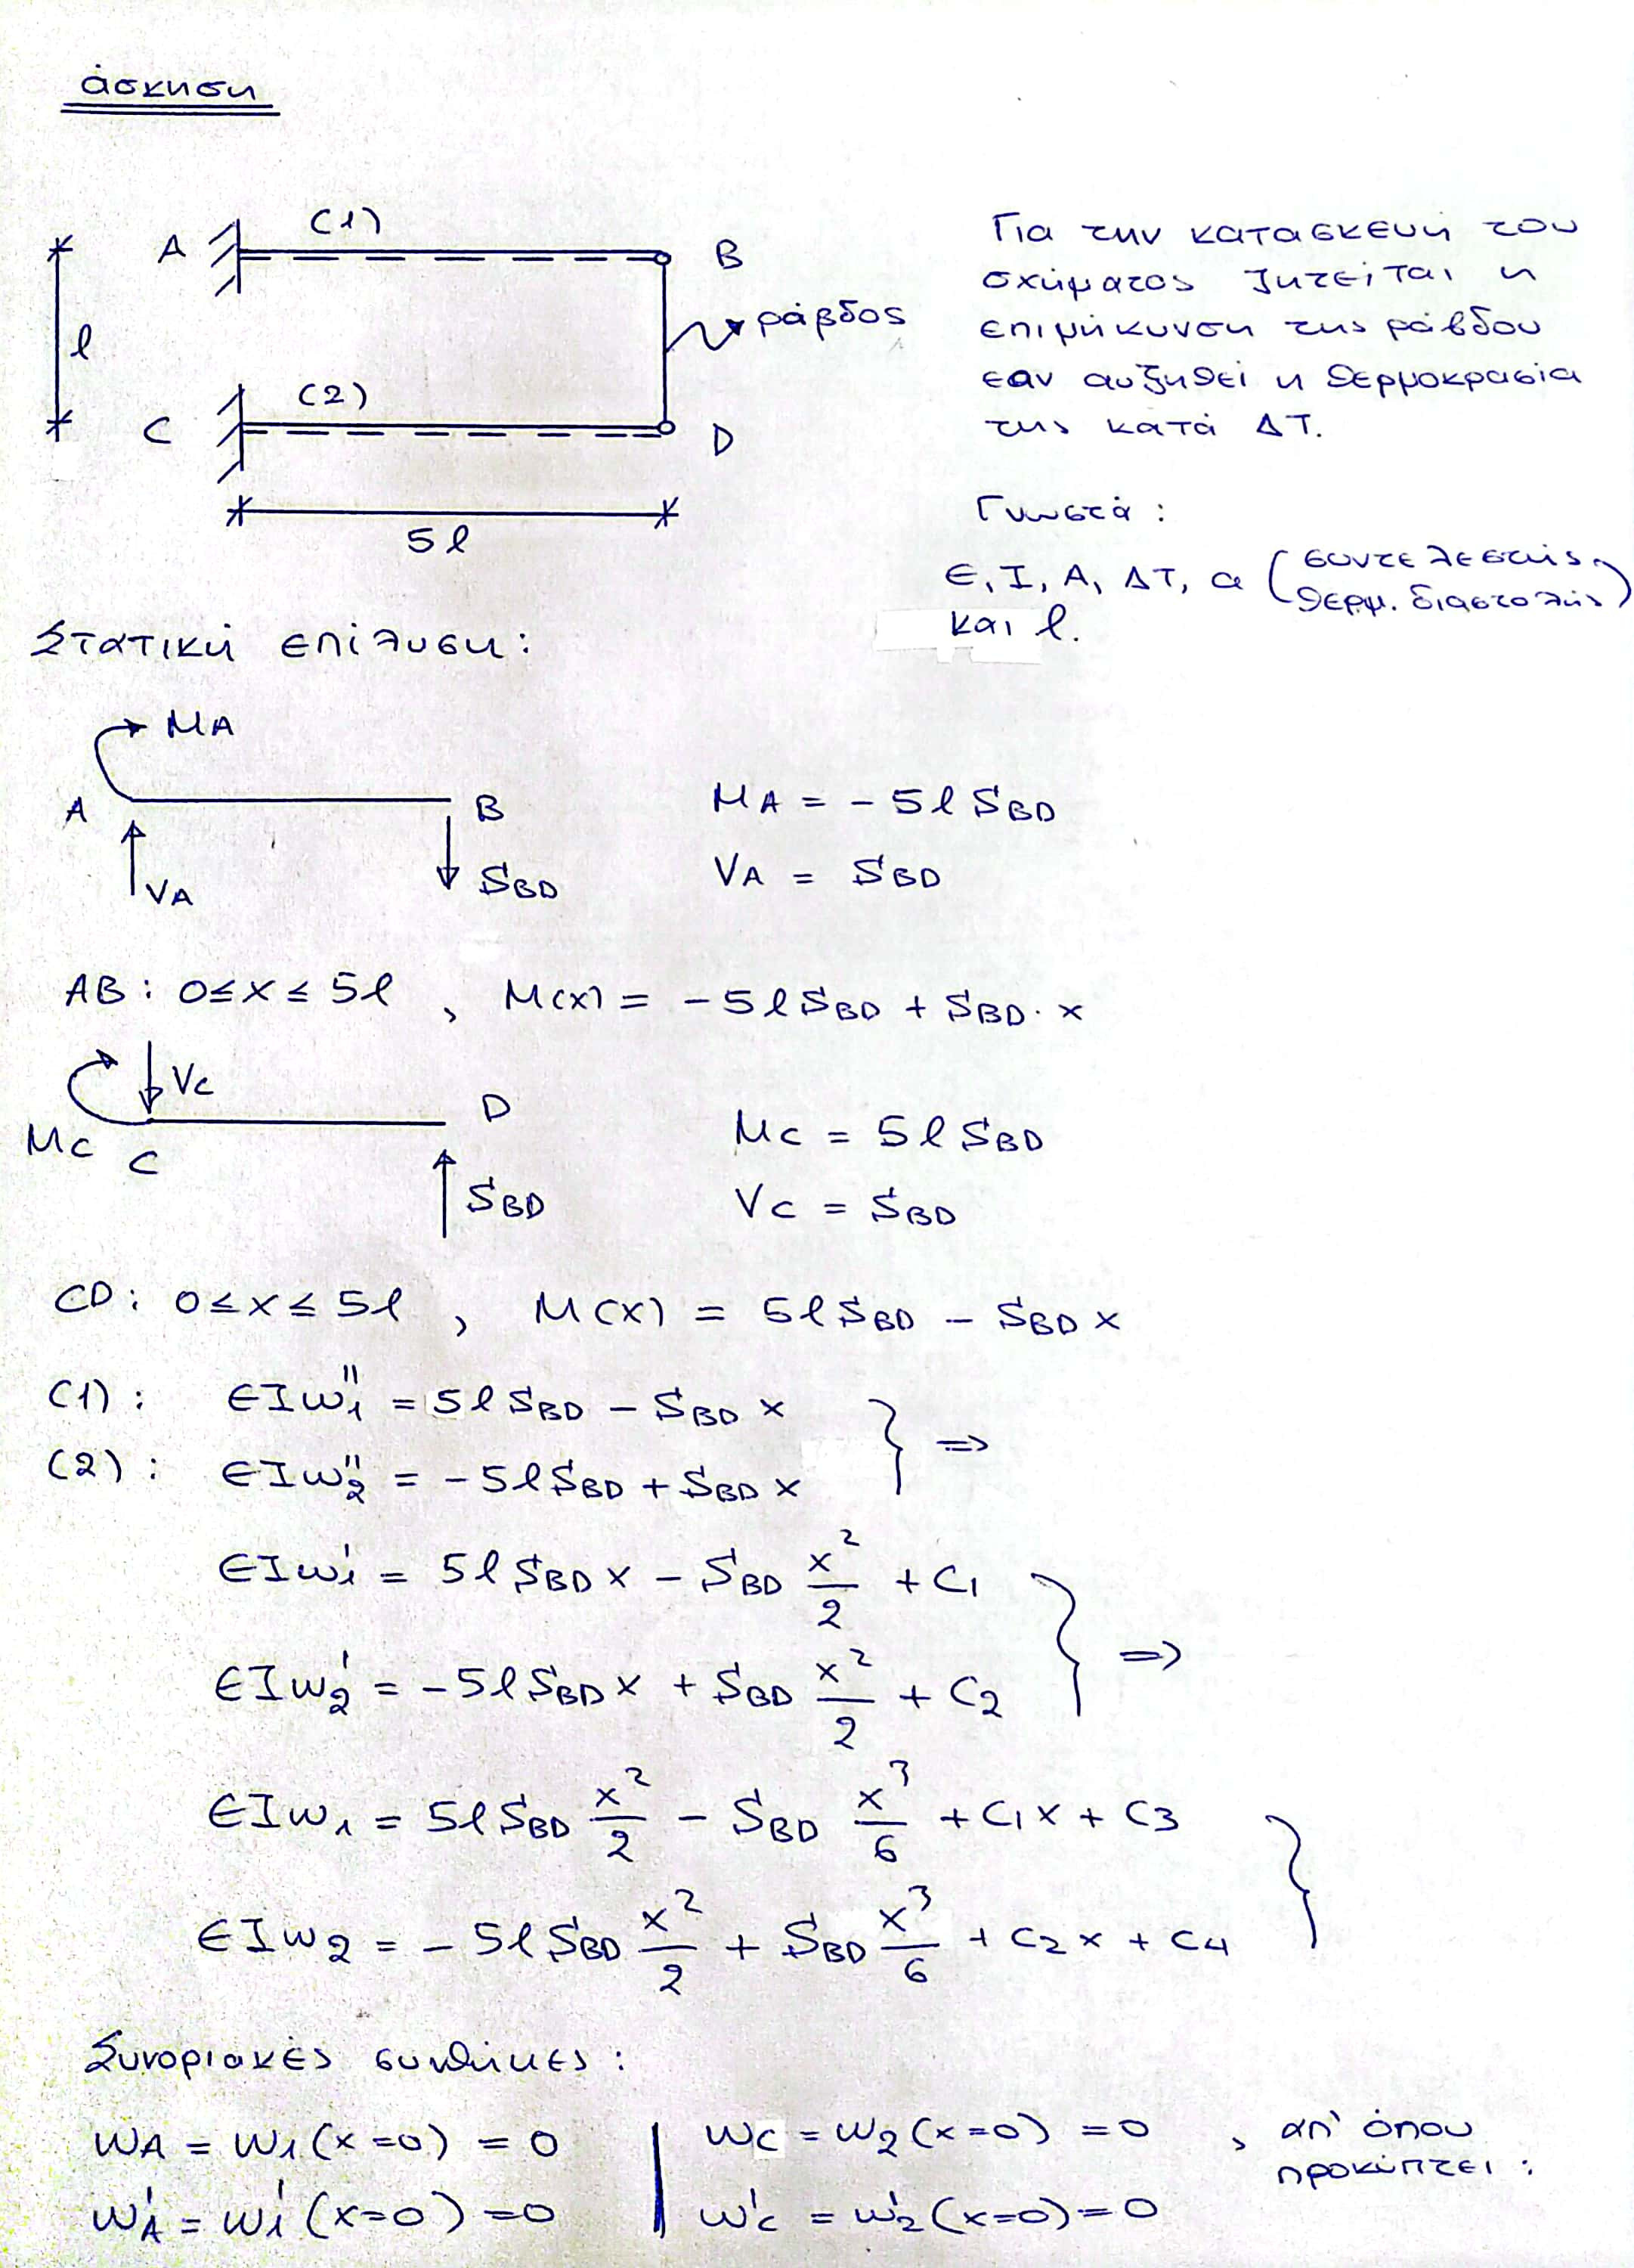 άσκηση
(1)
A
B
ράβδος
l
(2)
C
D
5l
Για την κατασκευή του
σχήματος ζητείται η
επιμήκυνση της ράβδου
εαν αυξηθεί η θερμοκρασία
της κατά ΔΤ.
Γνωστά :
E, I, A, ΔT, α (συντελεστής θερμ. διαστολής)
και l.
Στατική επίλυση :
MA
A
B
VA
SBD
MA = - 5l SBD
VA = SBD
AB : 0≤x≤5l , M(x) = -5l SBD + SBD · x
Vc
D
Mc
C
SBD
Mc = 5l SBD
Vc = SBD
CD : 0≤x≤5l , M(x) = 5l SBD - SBD x
(1) : EIw₁'' = 5l SBD - SBD x
(2) : EIw₂'' = -5l SBD + SBD x } =>
EIw₁' = 5l SBD x - SBD x²/2 + C₁
EIw₂' = -5l SBD x + SBD x²/2 + C₂ } =>
EIw₁ = 5l SBD x²/2 - SBD x³/6 + C₁x + C₃
EIw₂ = -5l SBD x²/2 + SBD x³/6 + C₂x + C₄ }
Συνοριακές συνθήκες :
wA = w₁(x=0) = 0 | wc = w₂(x=0) = 0 , απ' όπου προκύπτει :
w'A = w₁'(x=0) = 0 | w'c = w₂'(x=0) = 0